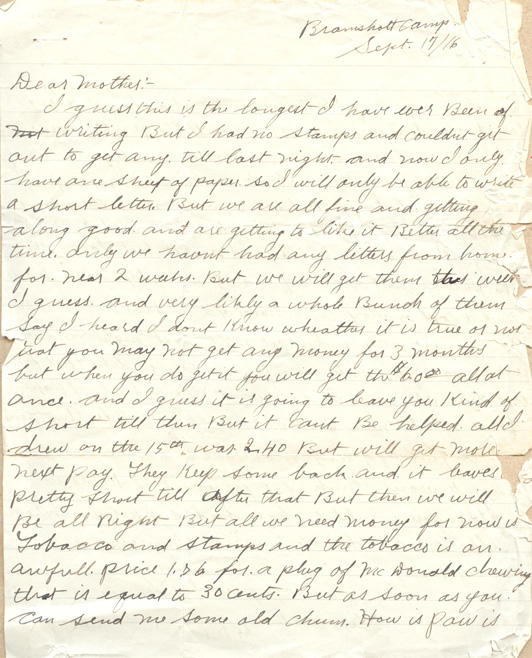 Bramshott Camp.
Sept. 17/16
Dear Mother:-
I guess this is the longest I have ever Been of
not writing But I had no stamps and couldnt get
out to get any. till last night. and now I only
have one sheet of paper. so I will only be able to write
a short letter. But we are all fine and getting
along good. and are getting to like it Better all the
time. only we havnt had any letters from home.
for. near 2 weeks. But we will get them this week
I guess. and very likly a whole Bunch of them
Say I heard I dont Know wheather it is true or not
that you may not get any money for 3 months
but when you do get it you will get the $60.00 all at
once. and I guess it is going to leave you Kind of
short till then But it cant Be helped. all I
drew on the 15th was 2.40 But will get more
next pay. They Keep some back and it leaves
pretty short till after that But then we will
Be all Right But all we need money for now is
Tobacco and stamps and the tobacco is an.
awfull. price for. a plug of Mc Donald chewing
that is equal to 30 cents. But as soon as you.
can send me some old chum. How is paw is